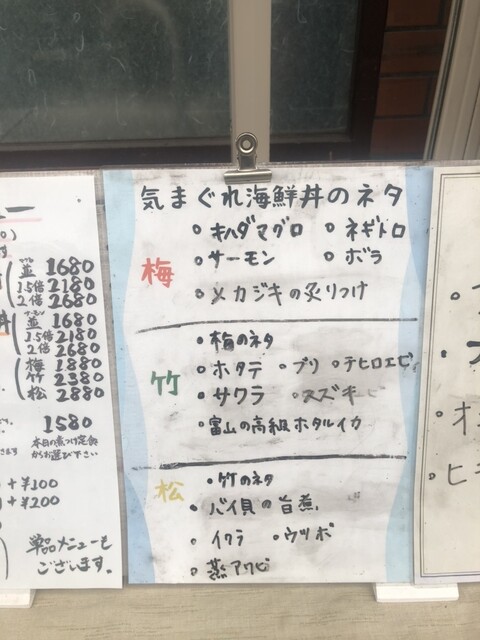 気まぐれ海鮮丼のネタ
梅
キハダマグロ ネギトロ
サーモン ボラ
メカジキの炙りつけ
竹
梅のネタ
ホタテ ブリ テナガエビ
サクラ スズキ
富山の高級ホタルイカ
松
竹のネタ
バイ貝の旨煮
イクラ ウツボ
蒸アワビ
並 1680
1.5倍 2180
2倍 2680
並 1680
1.5倍 2180
2倍 2680
梅 1880
竹 2380
松 2880
1580
本日の煮つけ定食
からお選び下さい
+¥100
+¥200
単品メニューも
ございます。